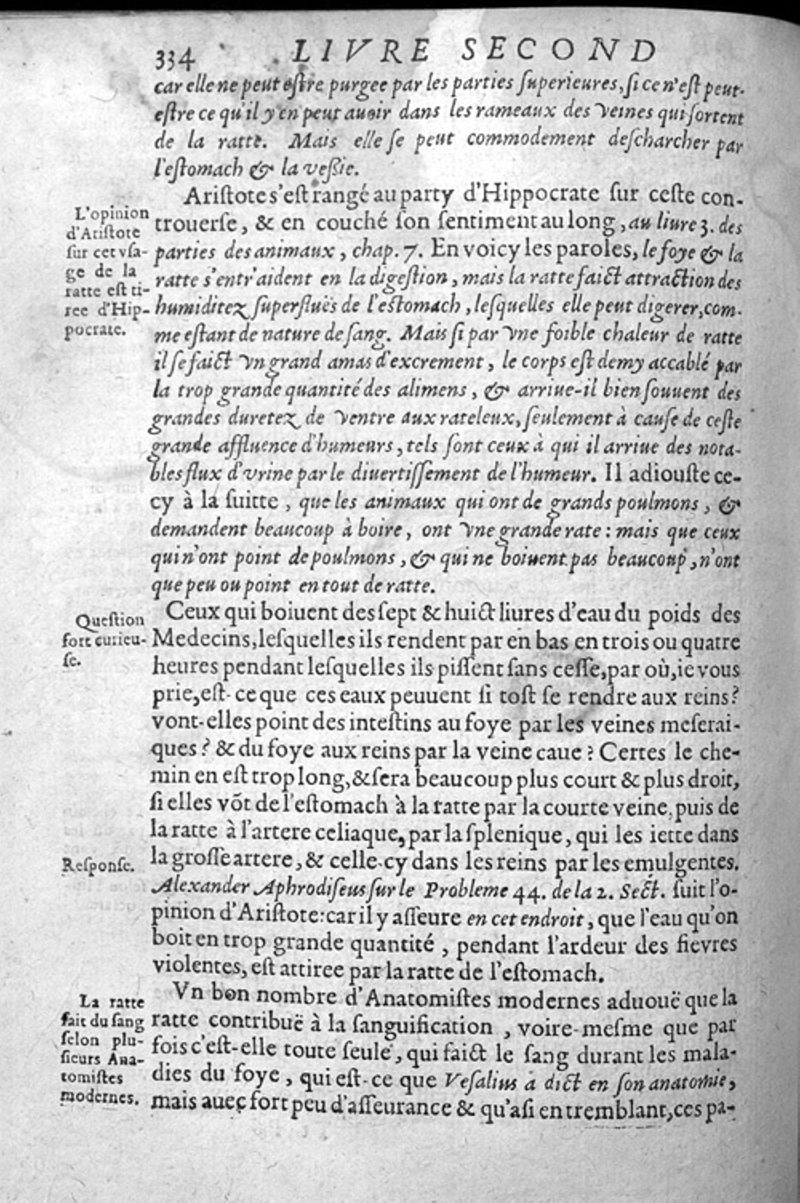 334 LIVRE SECOND
car elle ne peut estre purgee par les parties superieures, si ce n'est peut-
estre ce qu'il y en peut auoir dans les rameaux des veines qui sortent
de la ratte. Mais elle se peut commodement descharcher par
l'estomach & la vessie.
Aristote s'est rangé au party d'Hippocrate sur ceste con-
trouerse, & en couché son sentiment au long, au liure 3. des
parties des animaux, chap. 7. En voicy les paroles, le foye & la
ratte s'entr'aident en la digestion, mais la ratte faict attraction des
humiditez superfluës de l'estomach, lesquelles elle peut digerer, com-
me estant de nature de sang. Mais si par vne foible chaleur de ratte
il se faict vn grand amas d'excrement, le corps est demy accablé par
la trop grande quantité des alimens, & arriue-il bien souuent des
grandes duretez de ventre aux rateleux, seulement à cause de ceste
grande affluence d'humeurs, tels sont ceux à qui il arriue des nota-
bles flux d'vrine par le diuertissement de l'humeur. Il adiouste ce-
cy à la suitte, que les animaux qui ont de grands poulmons, &
demandent beaucoup à boire, ont vne grande rate : mais que ceux
qui n'ont point de poulmons, & qui ne boiuent pas beaucoup, n'ont
que peu ou point en tout de ratte.
L'opinion
d'Aristote
sur cet vsa-
ge de la
ratte est ti-
ree d'Hip-
pocrate.
Ceux qui boiuent des sept & huict liures d'eau du poids des
Medecins, lesquelles ils rendent par en bas en trois ou quatre
heures pendant lesquelles ils pissent sans cesse, par où, ie vous
prie, est-ce que ces eaux peuuent si tost se rendre aux reins?
vont-elles point des intestins au foye par les veines meserai-
ques? & du foye aux reins par la veine caue? Certes le che-
min en est trop long, & sera beaucoup plus court & plus droit,
si elles võt de l'estomach à la ratte par la courte veine, puis de
la ratte à l'artere celiaque, par la splenique, qui les iette dans
la grosse artere, & celle-cy dans les reins par les emulgentes.
Alexander Aphrodiseus sur le Probleme 44. de la 2. Sect. suit l'o-
pinion d'Aristote: car il y asseure en cet endroit, que l'eau qu'on
boit en trop grande quantité, pendant l'ardeur des fievres
violentes, est attiree par la ratte de l'estomach.
Question
fort curieu-
se.
Response.
Vn bon nombre d'Anatomistes modernes aduouë que la
ratte contribuë à la sanguification, voire-mesme que par
fois c'est-elle toute seule, qui faict le sang durant les mala-
dies du foye, qui est-ce que Vesalius a dict en son anatomie,
mais auec fort peu d'asseurance & qu'asi en tremblant, ces pa-
La ratte
fait du sang
selon plu-
sieurs Ana-
tomistes
modernes.